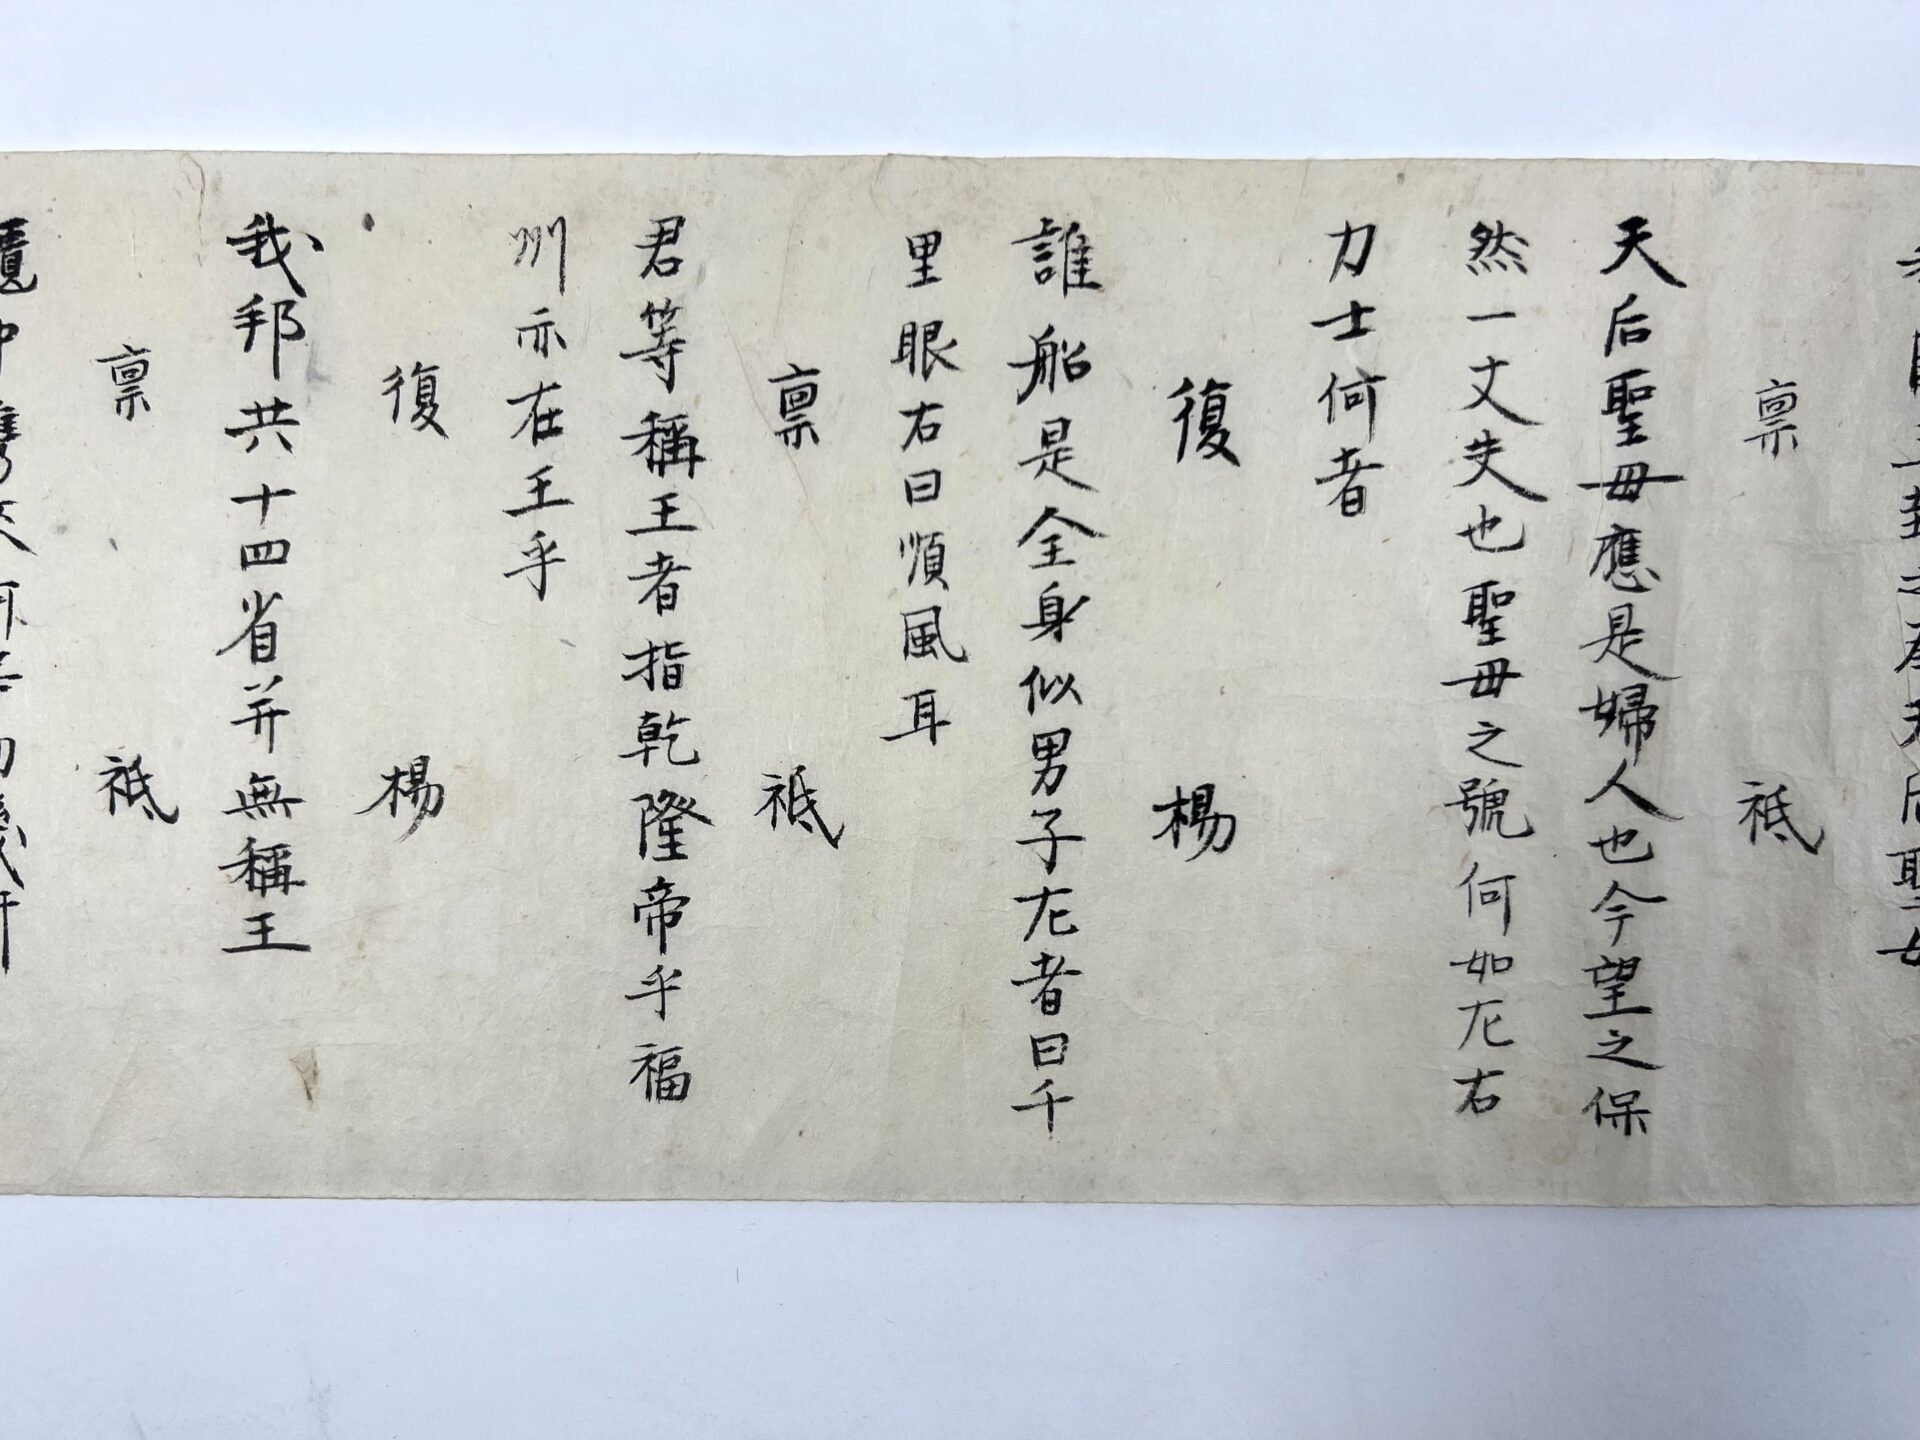 稟 祗
天后聖毋應是婦人也今望之保
然一丈夫也聖毋之號何如左右
力士何者
復 楊
誰船是全身似男子左者曰千
里眼右曰順風耳
稟 祗
君等稱王者指乾隆帝乎福
州亦在王乎
復 楊
我邦共十四省并無稱王
稟 祗